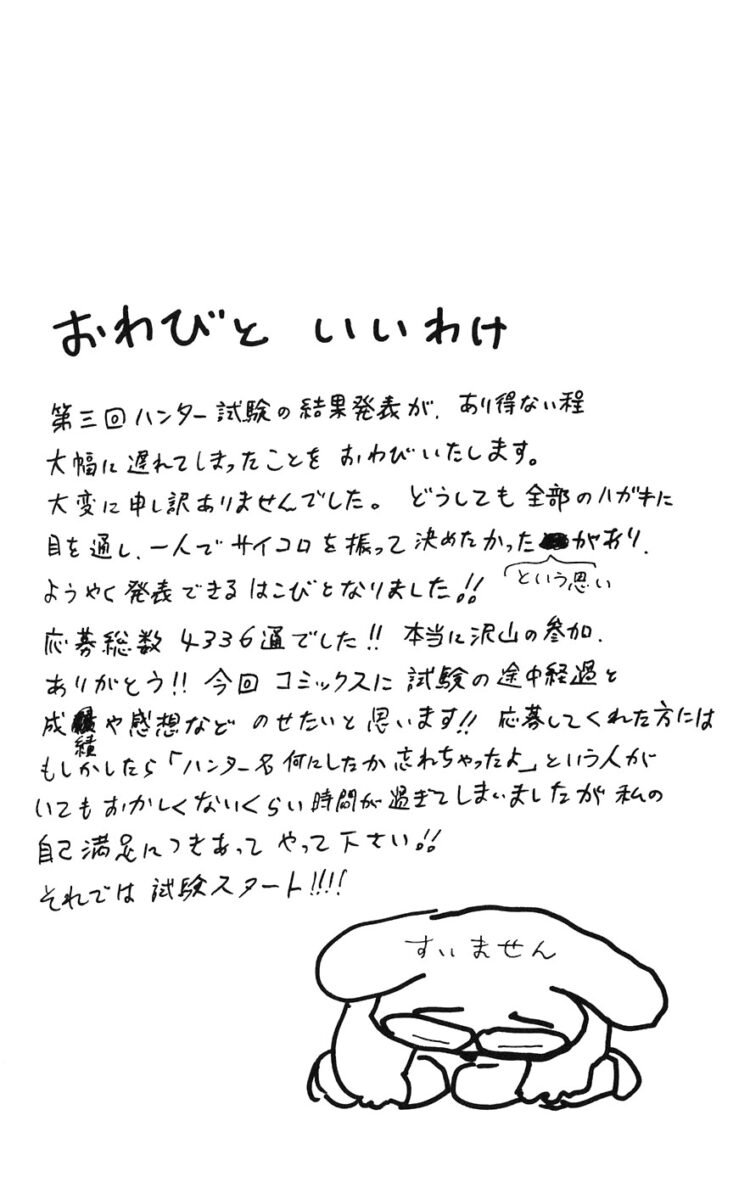 おわびと いいわけ
第三回ハンター試験の結果発表が、あり得ない程
大幅に遅れてしまったことを おわびいたします。
大変に申し訳ありませんでした。 どうしても全部のハガキに
目を通し、一人でサイコロを振って決めたかったがあり、
という思い
ようやく発表できるはこびとなりました!!
応募総数 4336通でした!! 本当に沢山の参加、
ありがとう!! 今回 コミックスに 試験の途中経過と
成績や感想など のせたいと思います!! 応募してくれた方には
もしかしたら「ハンター名何にしたか忘れちゃったよ」という人が
いてもおかしくないくらい時間が過ぎてしまいましたが 私の
自己満足につきあって やって下さい!!
それでは 試験スタート!!!!
すいません